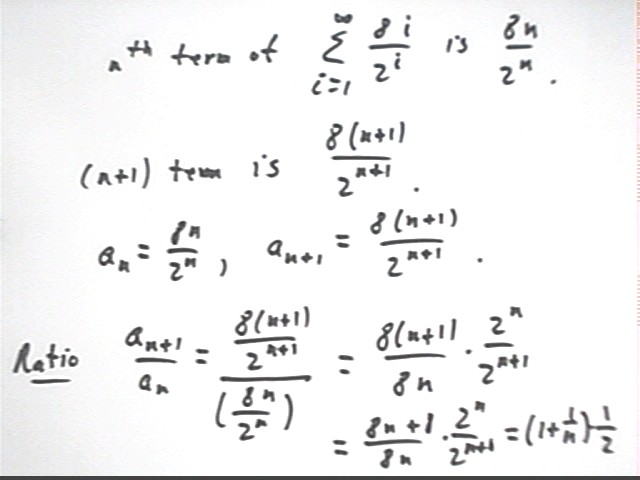 nth term of ∑_{i=1}^{∞} 8i/2^i is 8n/2^n.
(n+1) term is 8(n+1)/2^{n+1}.
a_n = 8n/2^n, a_{n+1} = 8(n+1)/2^{n+1}.
Ratio a_{n+1}/a_n = (8(n+1)/2^{n+1})/(8n/2^n) = 8(n+1)/8n · 2^n/2^{n+1}
= 8n+8/8n · 2^n/2^{n+1} = (1+1/n) 1/2